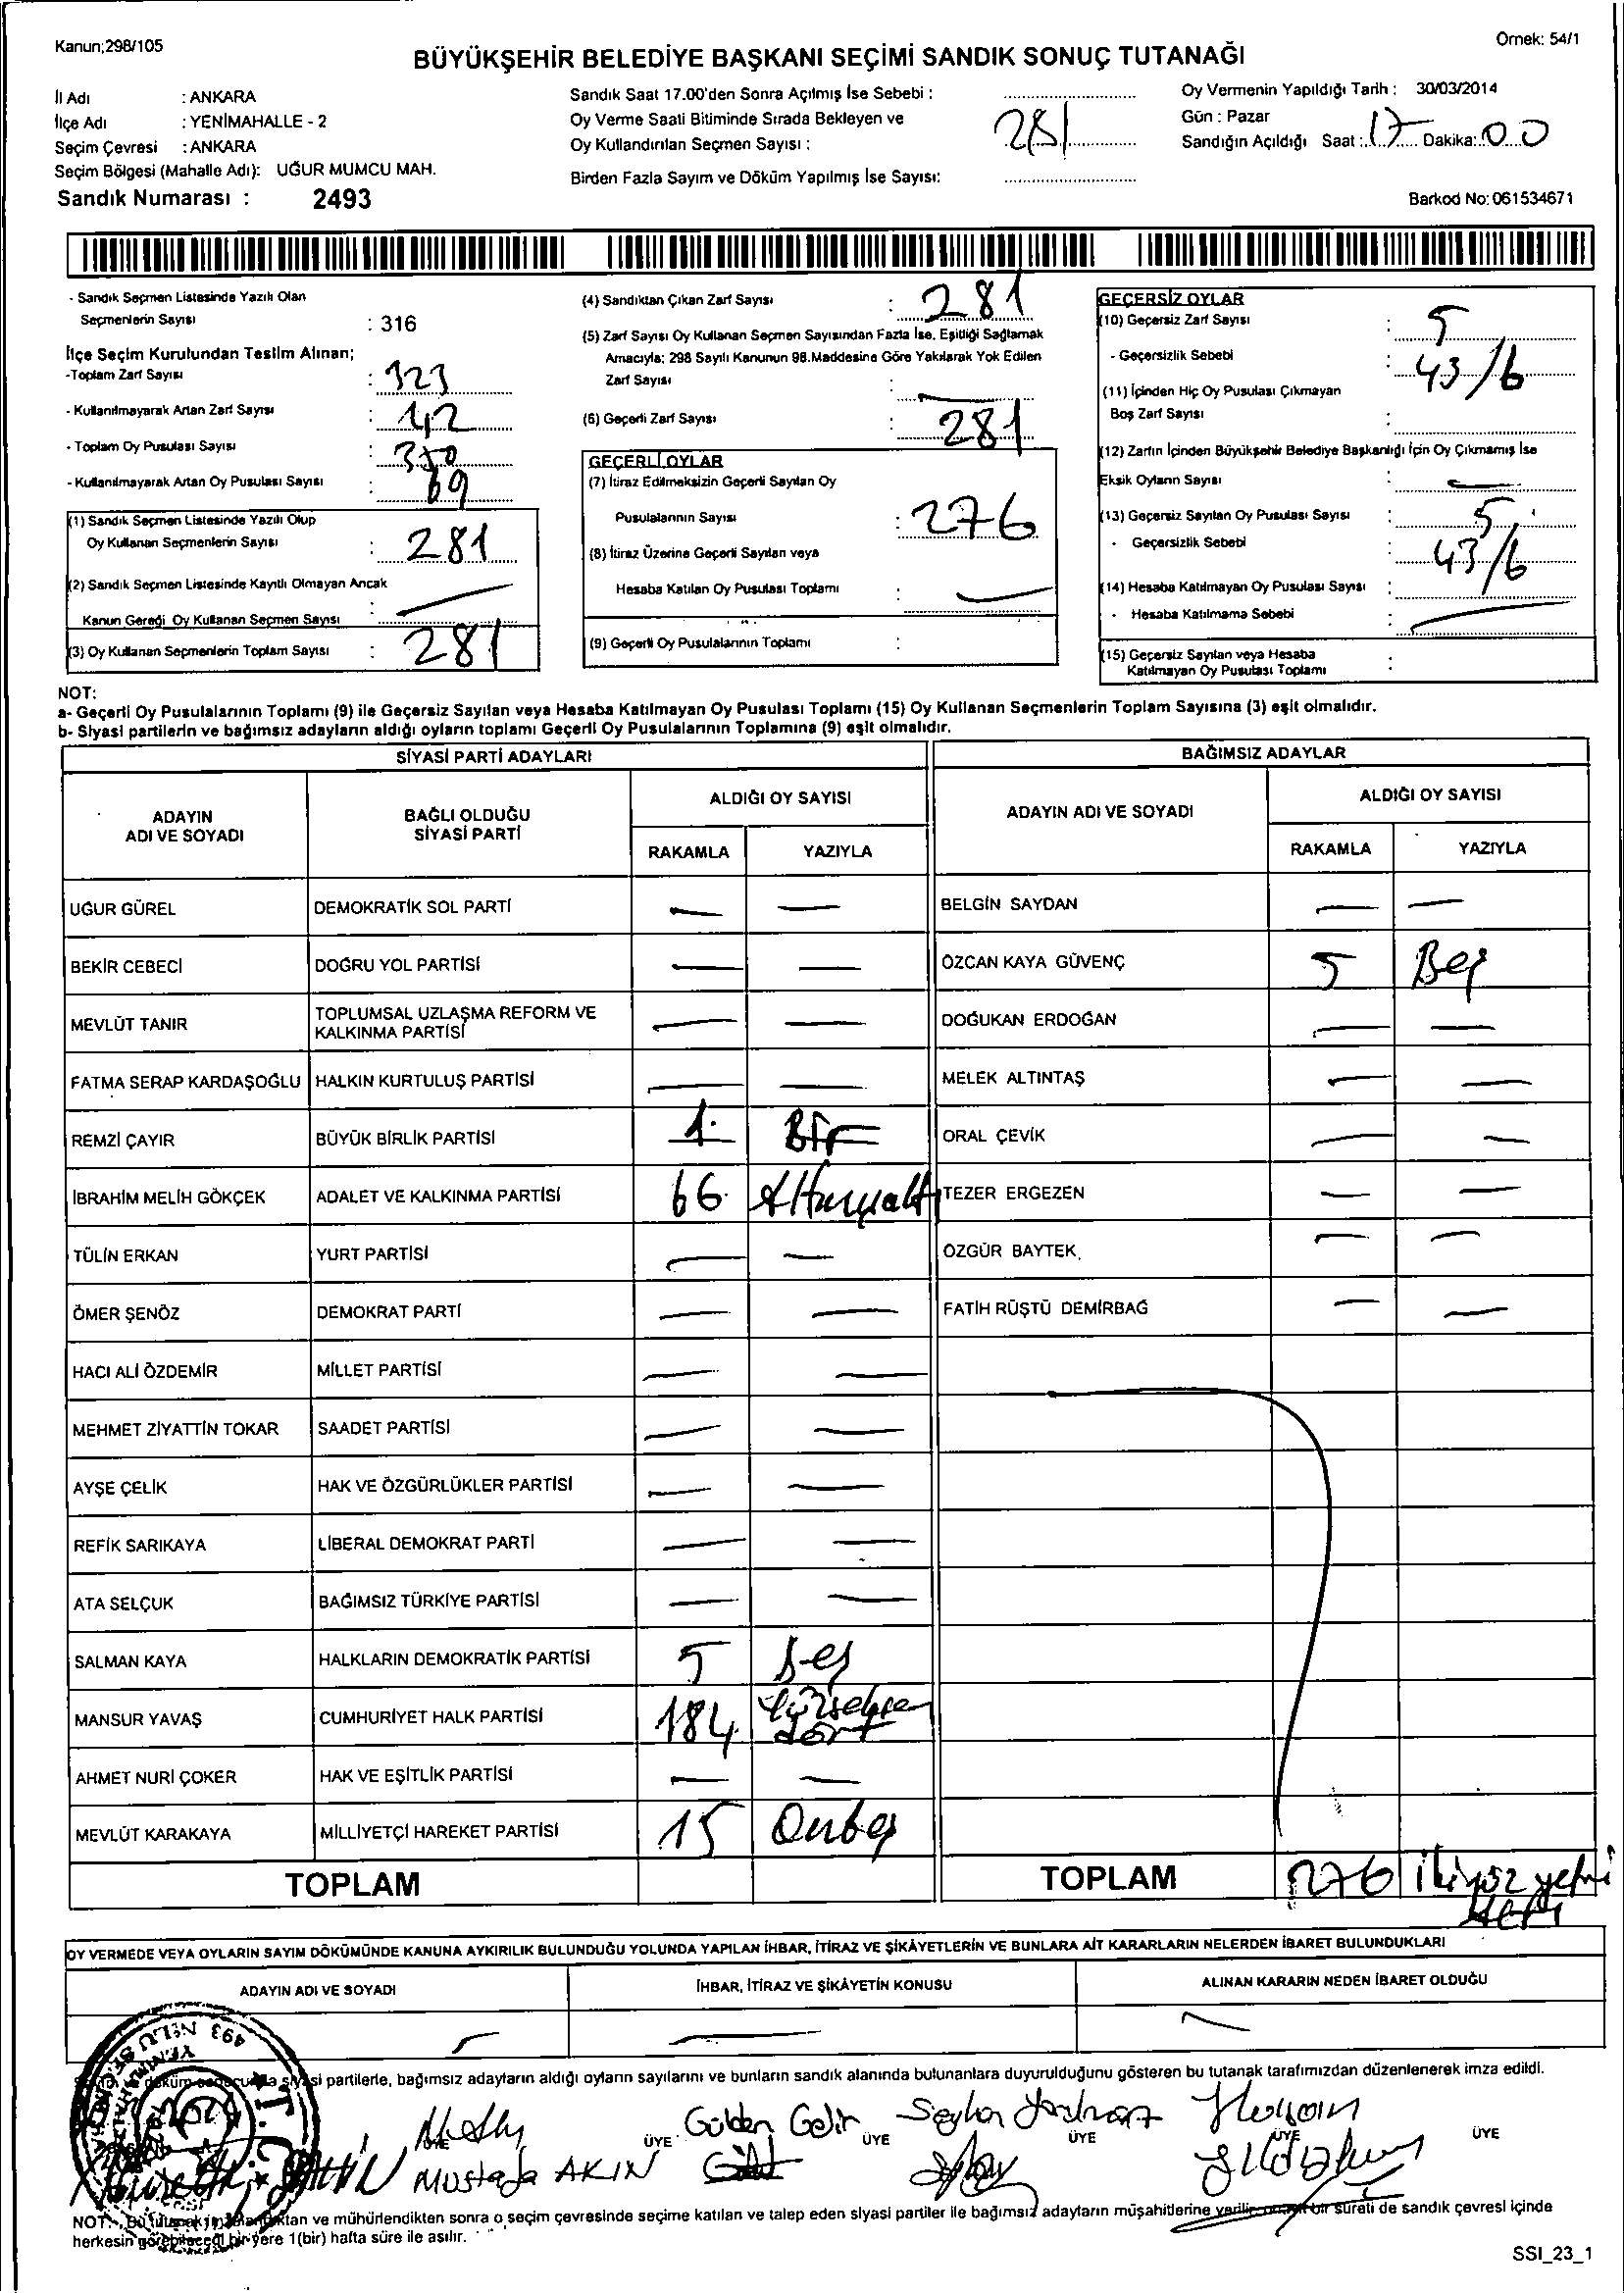 Kanun;298/105
Örnek: 54/1
BÜYÜKŞEHİR BELEDİYE BAŞKANI SEÇİMİ SANDIK SONUÇ TUTANAĞI
İl Adı : ANKARA
İlçe Adı : YENİMAHALLE - 2
Seçim Çevresi : ANKARA
Seçim Bölgesi (Mahalle Adı): UĞUR MUMCU MAH.
Sandık Numarası : 2493
Sandık Saat 17.00'den Sonra Açılmış İse Sebebi :
Oy Verme Saati Bitiminde Sırada Bekleyen ve
Oy Kullandırılan Seçmen Sayısı : 281
Birden Fazla Sayım ve Döküm Yapılmış İse Sayısı:
Oy Vermenin Yapıldığı Tarih : 30/03/2014
Gün : Pazar
Sandığın Açıldığı Saat : 17 Dakika: 00
Barkod No: 061534671
- Sandık Seçmen Listesinde Yazılı Olan
Seçmenlerin Sayısı : 316
İlçe Seçim Kurulundan Teslim Alınan;
-Toplam Zarf Sayısı : 323
- Kullanılmayarak Artan Zarf Sayısı : 42
- Toplam Oy Pusulası Sayısı : 350
- Kullanılmayarak Artan Oy Pusulası Sayısı : 69
(1) Sandık Seçmen Listesinde Yazılı Olup
Oy Kullanan Seçmenlerin Sayısı : 281
(2) Sandık Seçmen Listesinde Kayıtlı Olmayan Ancak
Kanun Gereği Oy Kullanan Seçmen Sayısı : —
(3) Oy Kullanan Seçmenlerin Toplam Sayısı : 281
(4) Sandıktan Çıkan Zarf Sayısı : 281
(5) Zarf Sayısı Oy Kullanan Seçmen Sayısından Fazla İse, Eşitliği Sağlamak
Amacıyla; 298 Sayılı Kanunun 98.Maddesine Göre Yakılarak Yok Edilen
Zarf Sayısı : —
(6) Geçerli Zarf Sayısı : 281
GEÇERLİ OYLAR
(7) İtiraz Edilmeksizin Geçerli Sayılan Oy
Pusulalarının Sayısı : 276
(8) İtiraz Üzerine Geçerli Sayılan veya
Hesaba Katılan Oy Pusulası Toplamı : —
(9) Geçerli Oy Pusulalarının Toplamı :
GEÇERSİZ OYLAR
(10) Geçersiz Zarf Sayısı : 5
- Geçersizlik Sebebi : 43/6
(11) İçinden Hiç Oy Pusulası Çıkmayan
Boş Zarf Sayısı :
(12) Zarfın İçinden Büyükşehir Belediye Başkanlığı İçin Oy Çıkmamış İse
Eksik Oyların Sayısı : —
(13) Geçersiz Sayılan Oy Pusulası Sayısı : 5
- Geçersizlik Sebebi : 43/6
(14) Hesaba Katılmayan Oy Pusulası Sayısı :
- Hesaba Katılmama Sebebi : —
(15) Geçersiz Sayılan veya Hesaba
Katılmayan Oy Pusulası Toplamı :
NOT:
a- Geçerli Oy Pusulalarının Toplamı (9) ile Geçersiz Sayılan veya Hesaba Katılmayan Oy Pusulası Toplamı (15) Oy Kullanan Seçmenlerin Toplam Sayısına (3) eşit olmalıdır.
b- Siyasi partilerin ve bağımsız adayların aldığı oyların toplamı Geçerli Oy Pusulalarının Toplamına (9) eşit olmalıdır.
SİYASİ PARTİ ADAYLARI
ADAYIN
ADI VE SOYADI
BAĞLI OLDUĞU
SİYASİ PARTİ
ALDIĞI OY SAYISI
RAKAMLA YAZIYLA
UĞUR GÜREL DEMOKRATİK SOL PARTİ — —
BEKİR CEBECİ DOĞRU YOL PARTİSİ — —
MEVLÜT TANIR TOPLUMSAL UZLAŞMA REFORM VE
KALKINMA PARTİSİ — —
FATMA SERAP KARDAŞOĞLU HALKIN KURTULUŞ PARTİSİ — —
REMZİ ÇAYIR BÜYÜK BİRLİK PARTİSİ 1 Bir
İBRAHİM MELİH GÖKÇEK ADALET VE KALKINMA PARTİSİ 66 Altmışaltı
TÜLİN ERKAN YURT PARTİSİ — —
ÖMER ŞENÖZ DEMOKRAT PARTİ — —
HACI ALİ ÖZDEMİR MİLLET PARTİSİ — —
MEHMET ZİYATTİN TOKAR SAADET PARTİSİ — —
AYŞE ÇELİK HAK VE ÖZGÜRLÜKLER PARTİSİ — —
REFİK SARIKAYA LİBERAL DEMOKRAT PARTİ — —
ATA SELÇUK BAĞIMSIZ TÜRKİYE PARTİSİ — —
SALMAN KAYA HALKLARIN DEMOKRATİK PARTİSİ 5 Beş
MANSUR YAVAŞ CUMHURİYET HALK PARTİSİ 184 Yüzseksen
dört
AHMET NURİ ÇOKER HAK VE EŞİTLİK PARTİSİ — —
MEVLÜT KARAKAYA MİLLİYETÇİ HAREKET PARTİSİ 15 Onbeş
TOPLAM
BAĞIMSIZ ADAYLAR
ADAYIN ADI VE SOYADI
ALDIĞI OY SAYISI
RAKAMLA YAZIYLA
BELGİN SAYDAN — —
ÖZCAN KAYA GÜVENÇ 5 Beş
DOĞUKAN ERDOĞAN — —
MELEK ALTINTAŞ — —
ORAL ÇEVİK — —
TEZER ERGEZEN — —
ÖZGÜR BAYTEK — —
FATİH RÜŞTÜ DEMİRBAĞ — —
TOPLAM 276 ikiyüz yetmi
OY VERMEDE VEYA OYLARIN SAYIM DÖKÜMÜNDE KANUNA AYKIRILIK BULUNDUĞU YOLUNDA YAPILAN İHBAR, İTİRAZ VE ŞİKÂYETLERİN VE BUNLARA AİT KARARLARIN NELERDEN İBARET BULUNDUKLARI
ADAYIN ADI VE SOYADI İHBAR, İTİRAZ VE ŞİKÂYETİN KONUSU ALINAN KARARIN NEDEN İBARET OLDUĞU
siyasi partilerle, bağımsız adayların aldığı oyların sayılarını ve bunların sandık alanında bulunanlara duyurulduğunu gösteren bu tutanak tarafımızdan düzenlenerek imza edildi.
Gülden Gelir
ÜYE ÜYE ÜYE ÜYE ÜYE ÜYE
Mustafa AKIN
T.C.
NOT: Bu tutanak imzalandıktan ve mühürlendikten sonra o seçim çevresinde seçime katılan ve talep eden siyasi partiler ile bağımsız adayların müşahitlerine verilir bir sureti de sandık çevresi içinde
herkesin görebileceği bir yere 1(bir) hafta süre ile asılır.
SSI_23_1